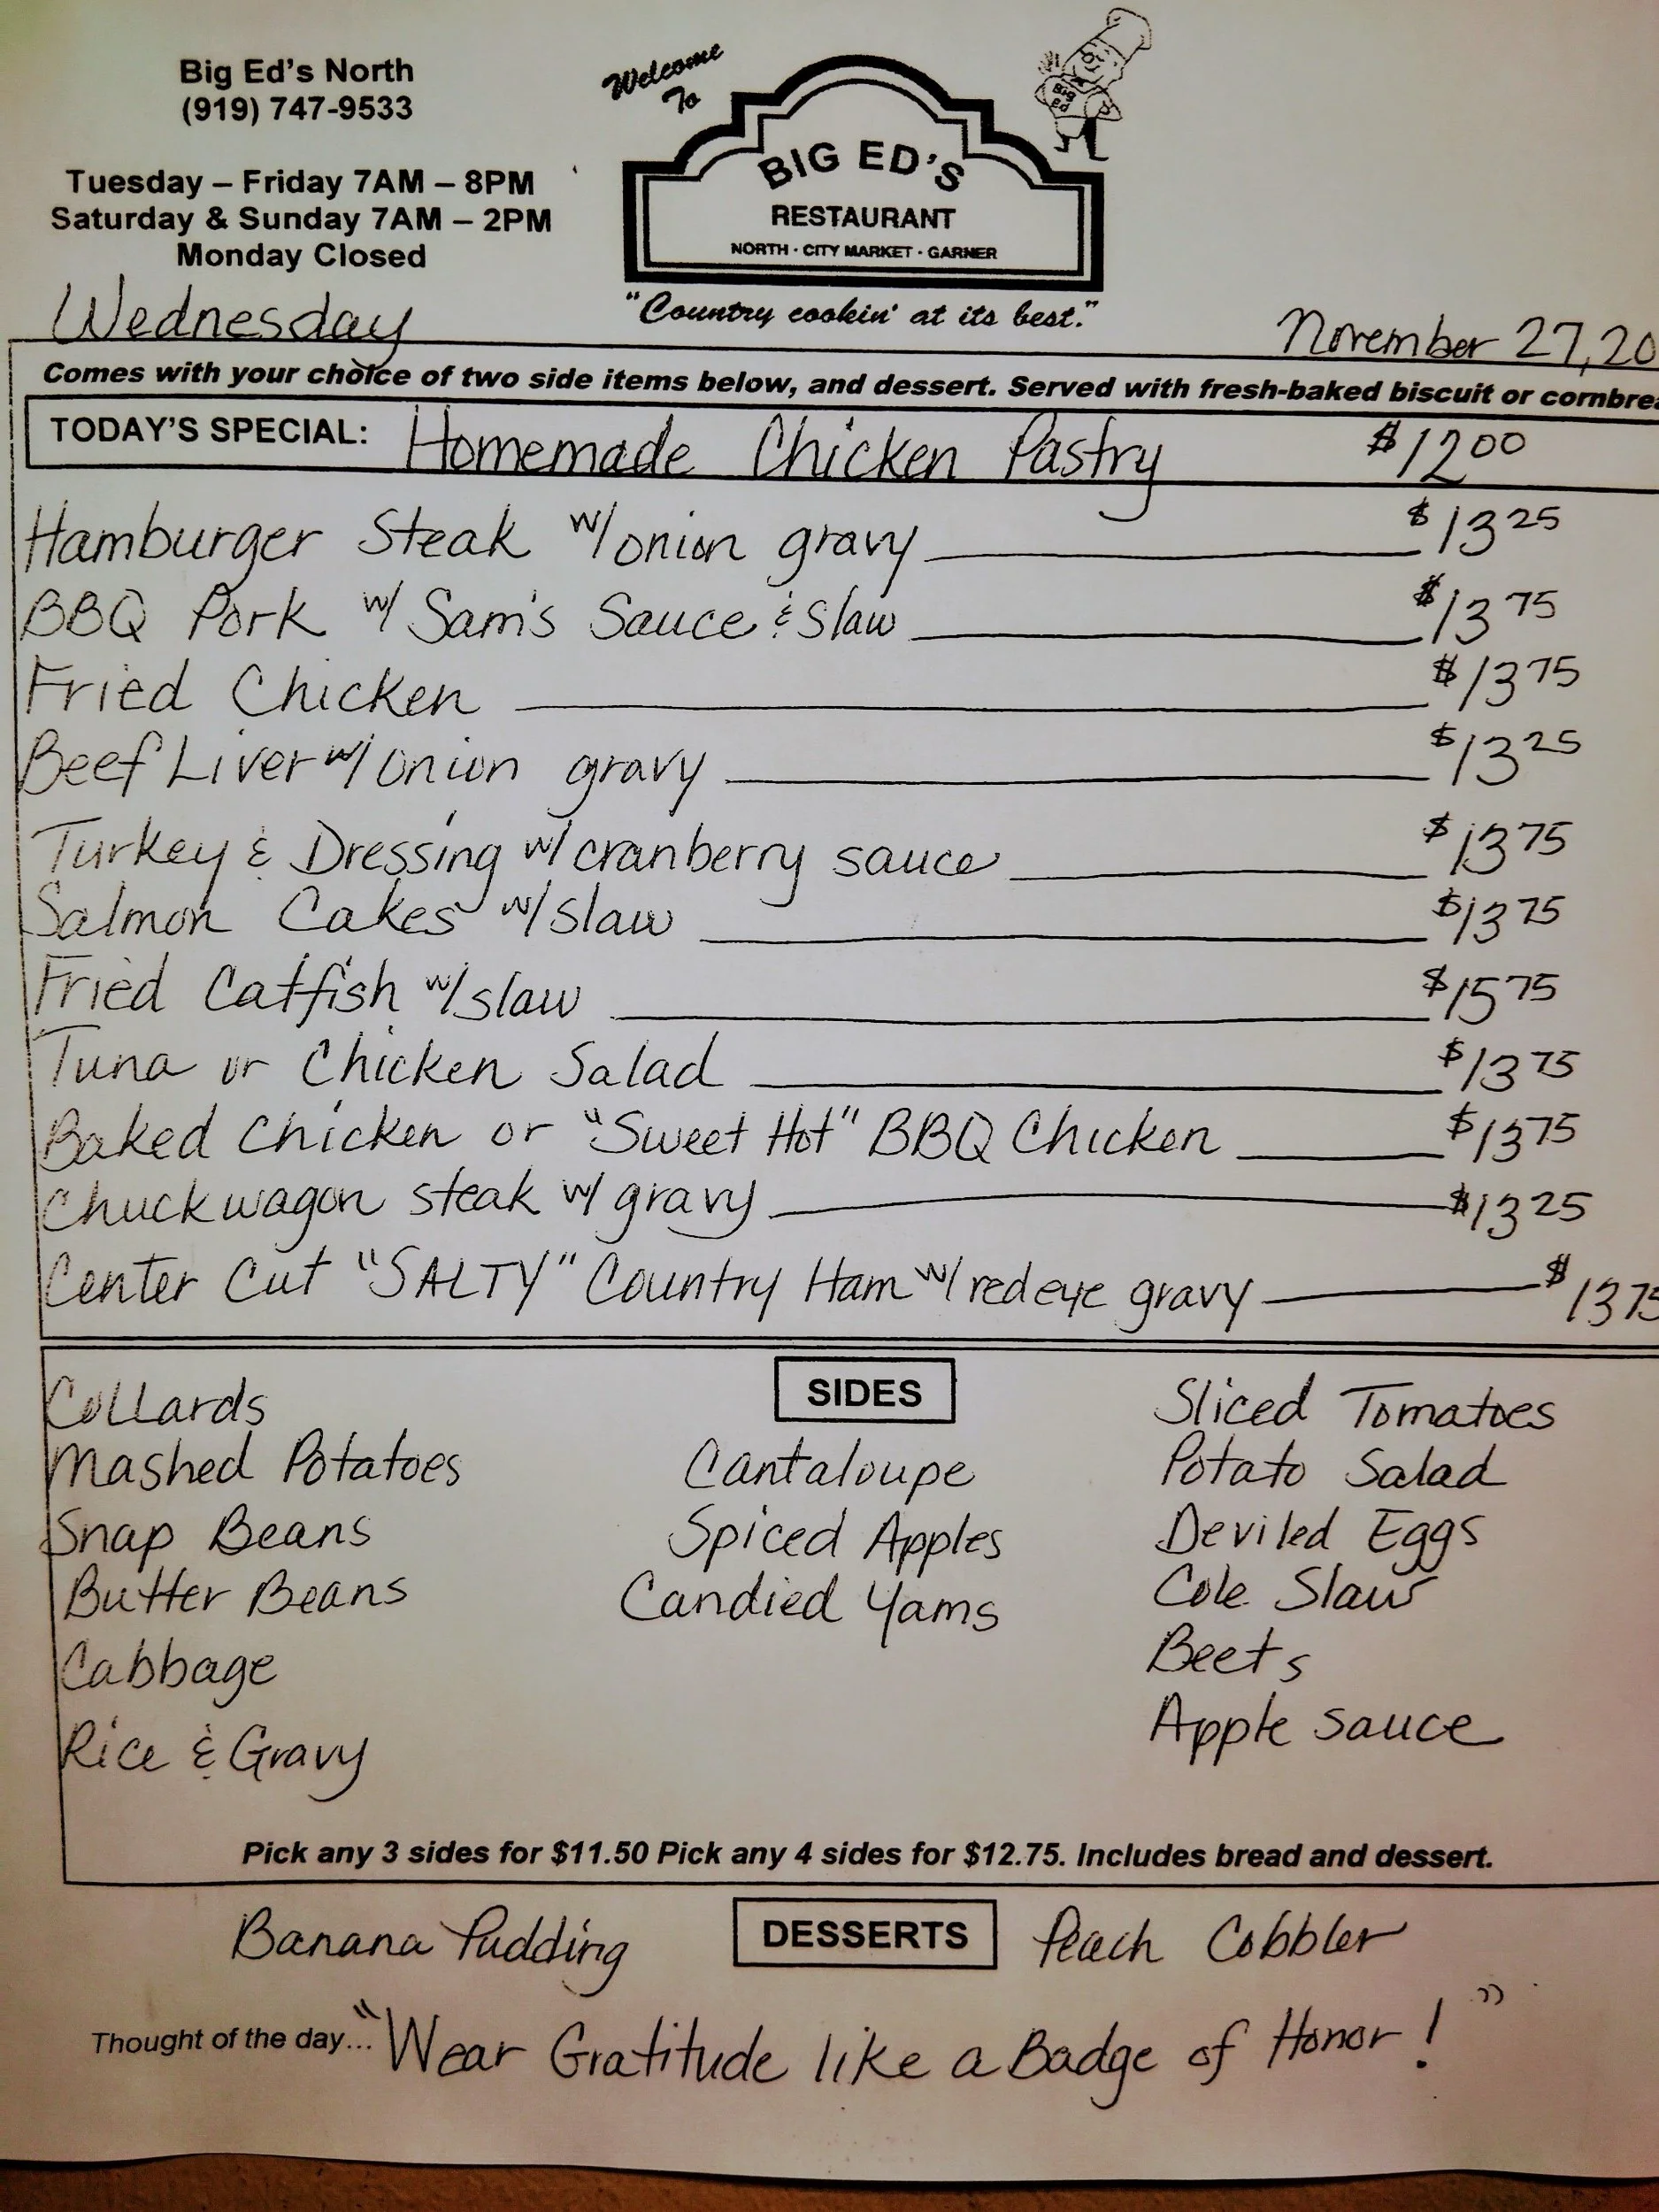 Big Ed's North
(919) 747-9533
Tuesday – Friday 7AM – 8PM
Saturday & Sunday 7AM – 2PM
Monday Closed
Welcome
To
BIG ED'S
RESTAURANT
NORTH · CITY MARKET · GARNER
"Country cookin' at its best."
Big
Ed
Wednesday
November 27, 20
Comes with your choice of two side items below, and dessert. Served with fresh-baked biscuit or cornbrea
TODAY'S SPECIAL: Homemade Chicken Pastry $12.00
Hamburger Steak w/ onion gravy $13 25
BBQ Pork w/ Sam's Sauce & Slaw $13 75
Fried Chicken $13 75
Beef Liver w/ onion gravy $13 25
Turkey & Dressing w/ cranberry sauce $13 75
Salmon Cakes w/ slaw $13 75
Fried Catfish w/ slaw $15 75
Tuna or Chicken Salad $13 75
Baked Chicken or "Sweet Hot" BBQ Chicken $13 75
Chuckwagon steak w/ gravy $13 25
Center Cut "SALTY" Country Ham w/ redeye gravy $13 75
SIDES
Collards
Mashed Potatoes
Snap Beans
Butter Beans
Cabbage
Rice & Gravy
Cantaloupe
Spiced Apples
Candied Yams
Sliced Tomatoes
Potato Salad
Deviled Eggs
Cole Slaw
Beets
Apple sauce
Pick any 3 sides for $11.50 Pick any 4 sides for $12.75. Includes bread and dessert.
DESSERTS
Banana Pudding
Peach Cobbler
Thought of the day... "Wear Gratitude like a Badge of Honor!"